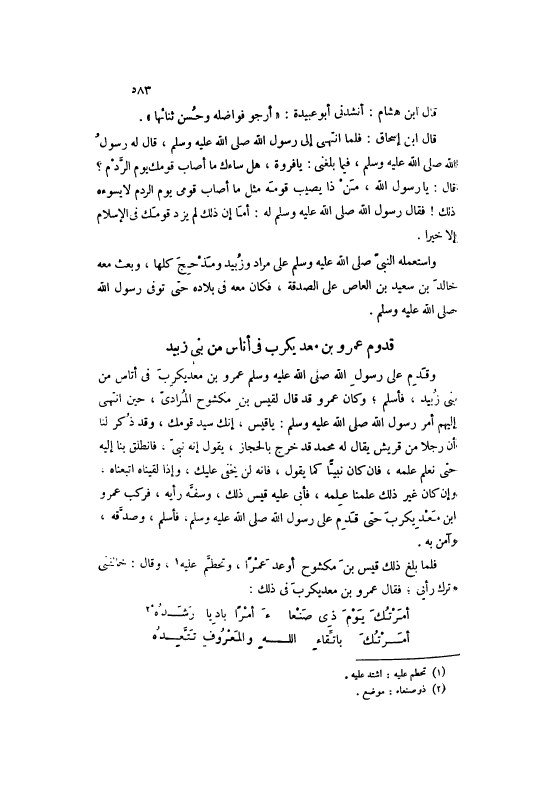 ٥٨٣
قال ابن هشام : أنشدنى أبو عبيدة : « أرجو فواضله وحُسن ثنائها » .
قال ابن إسحاق : فلما انتهى إلى رسول الله صلى الله عليه وسلم ، قال له رسولُ
الله صلى الله عليه وسلم ، فيما بلغنى : يافروة ، هل ساءك ما أصاب قومك يوم الرَّدْم ؟
قال : يا رسول الله ، مَنْ ذا يصيب قومَه مثل ما أصاب قومى يوم الردم لايسوءه
ذلك ! فقال رسول الله صلى الله عليه وسلم له : أمَا إن ذلك لم يزد قومَك فى الإسلام
إلا خيرا .
واستعمله النبىّ صلى الله عليه وسلم على مراد وزُبيد ومَذْحِج كلها ، وبعث معه
خالدَ بن سعيد بن العاص على الصدقة ، فكان معه فى بلاده حتَّى توفى رسول الله
صلى الله عليه وسلم .
قدوم عمرو بن معد يكرب فى أناس من بنى زبيد
وقَدِم على رسولِ الله صلى الله عليه وسلم عمرو بن معديكربَ فى أناس من
بنى زُبيد ، فأسلم ؛ وكان عمرو قد قال لقيس بنِ مكشوح المُرادىّ ، حين انتهى
إليهم أمر رسول الله صلى الله عليه وسلم : ياقيس ، إنك سيد قومك ، وقد ذُكر لنا
أن رجلا من قريش يقال له محمد قد خرج بالحجاز ، يقول إنه نبىّ ، فانطلق بنا إليه
حتى نعلم علمه ، فان كان نبيًّا كما يقول ، فانه لن يَخْفى عليك ، وإذا لقيناه اتبعناه ،
وإن كان غير ذلك علمنا عِلمه ، فأبى عليه قيس ذلك ، وسفَّه رأيه ، فركب عمرو
ابن مَعْدِ يكربَ حتى قَدِم على رسول الله صلى الله عليه وسلم ، فأسلم ، وصدَّقه ،
وآمن به .
فلما بلغ ذلك قيس بنَ مكشوح أوعد عَمْرًا ، وتحطَّم عليه١ ، وقال : خالفنى
وترك رأيى ؛ فقال عمرو بن معديكربَ فى ذلك :
أمَرْتُكَ يَوْمَ ذِى صَنْعا ءَ أمْرًا باديا رَشَدُهْ٢
أمَرْتُكَ باتِّقاءِ اللهِ والمَعْرُوفِ تَتَّعِدُهْ
(١) تحطم عليه : اشتد عليه .
(٢) ذو صنعاء : موضع .